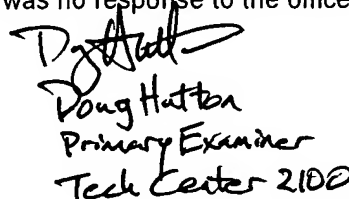 was no response to the office
Doug Hutton
Primary Examiner
Tech Center 2100